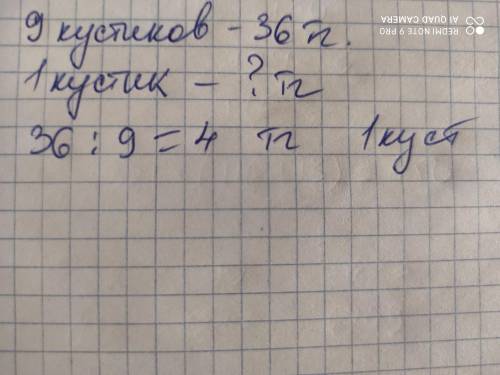 9 кустиков - 36 тг.
1 кустик - ? тг
36 : 9 = 4 тг 1 куст
REDMI NOTE 9 PRO
AI QUAD CAMERA